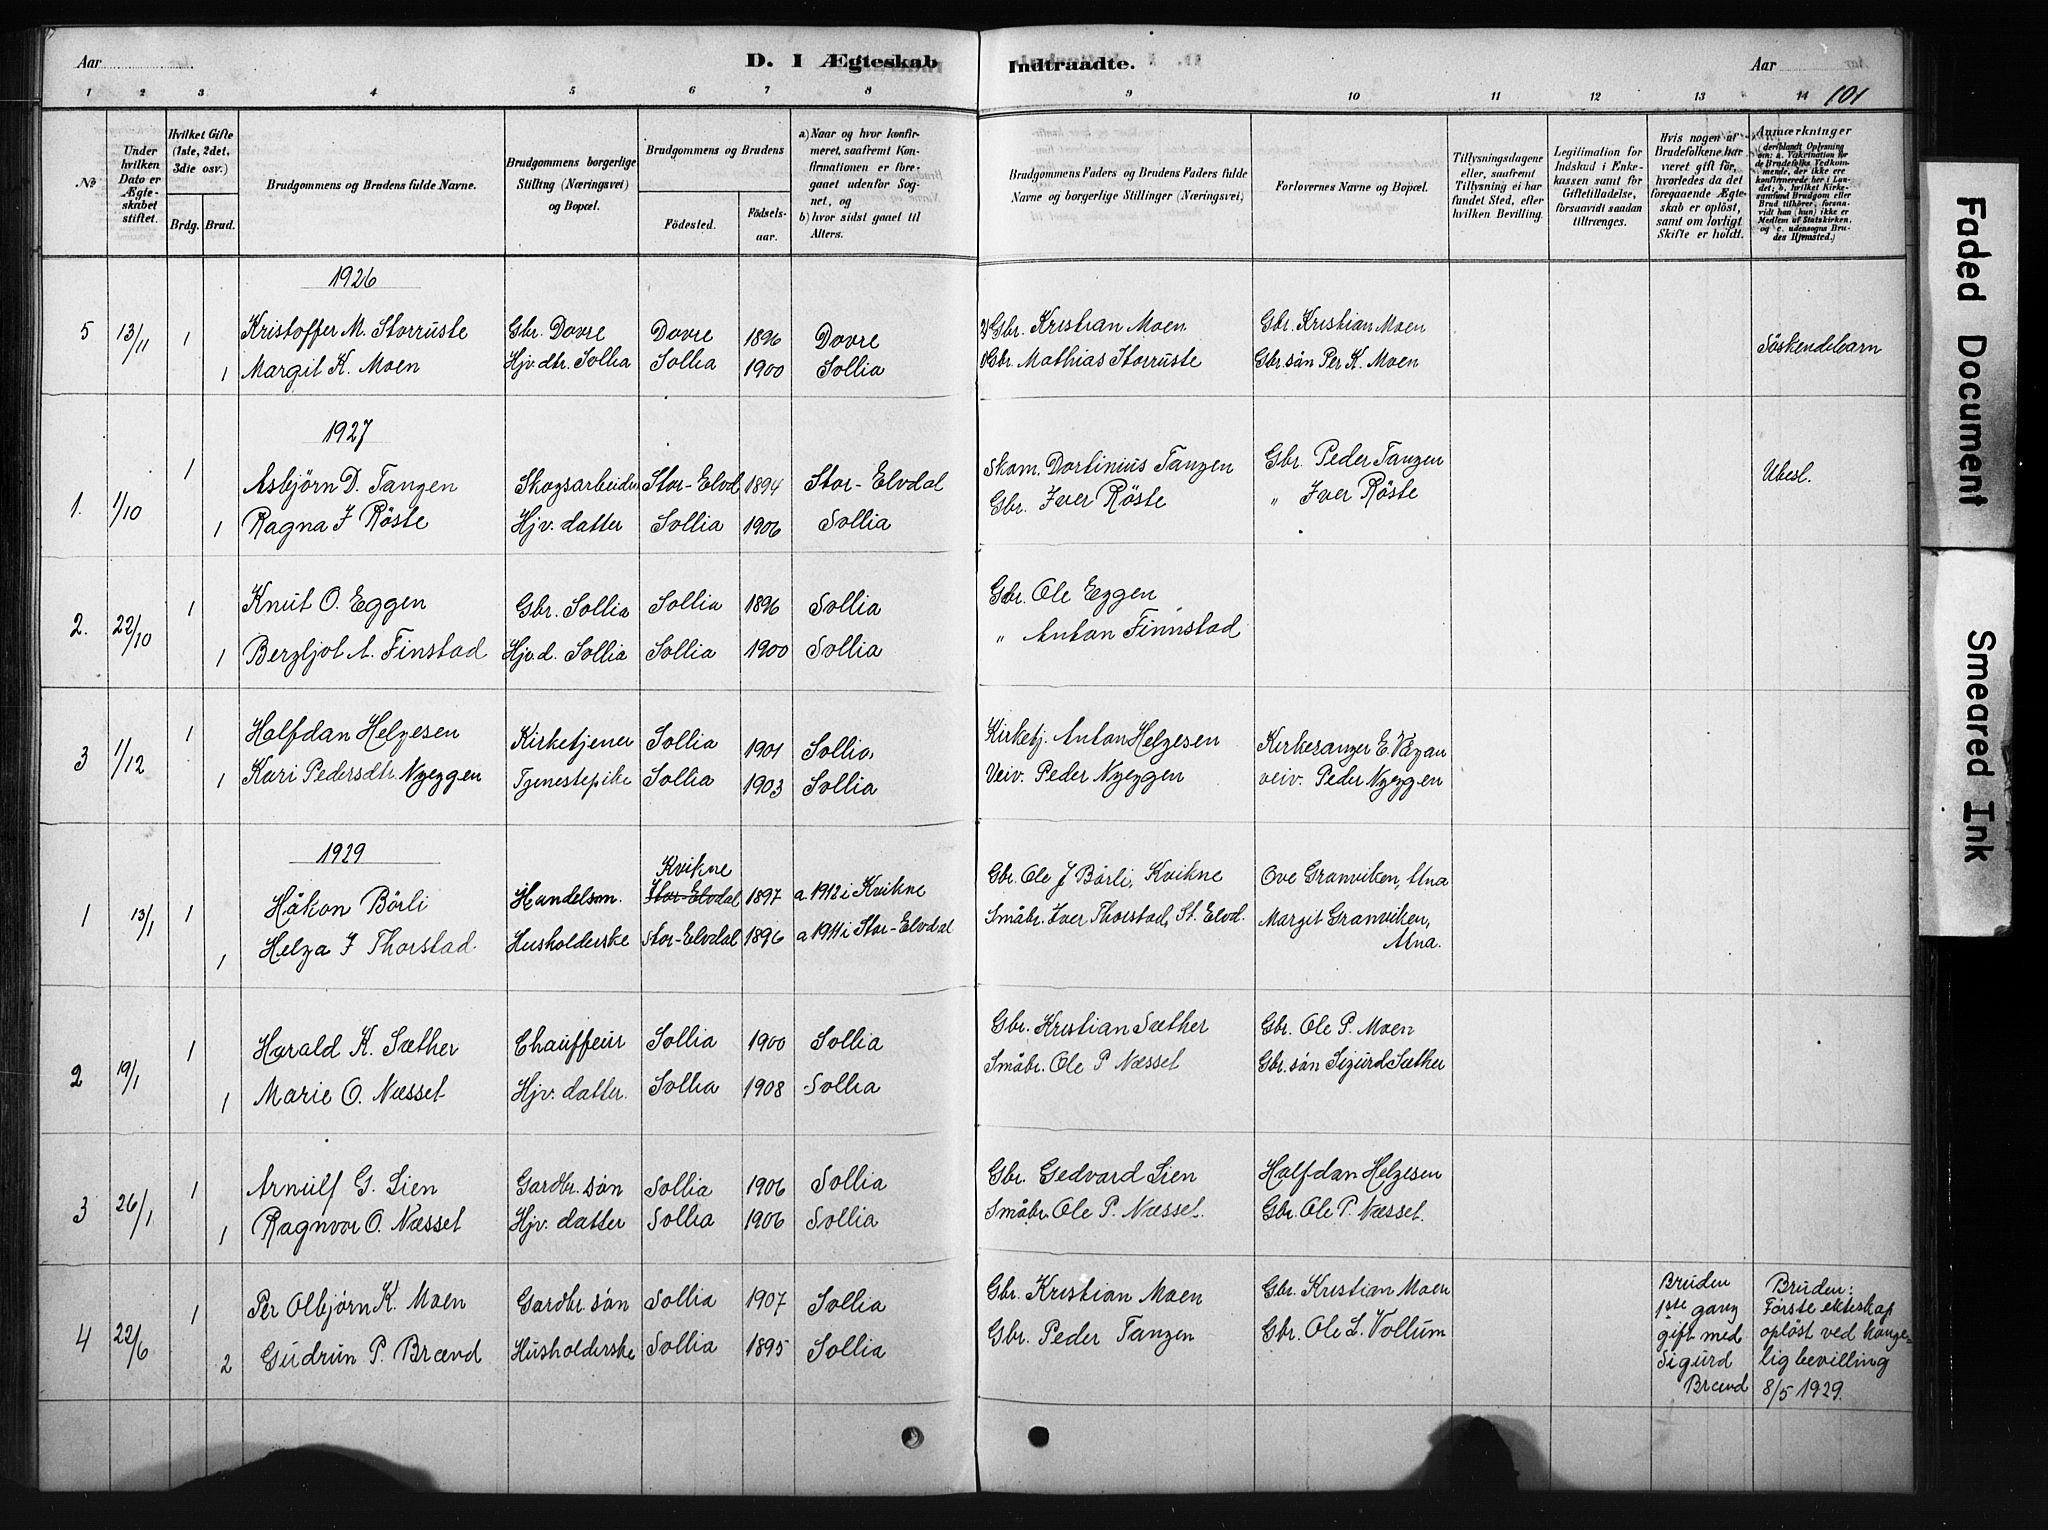 Aar
D. I Ægteskab
Indtraadte.
Aar
1 2 3 4 5 6 7 8 9 10 11 12 13 14
101
No
Under hvilken Dato er Ægteskabet stiftet.
Hvilket Gifte (1ste, 2det, 3die osv.)
Brdg. Brud.
Brudgommens og Brudens fulde Navne.
Brudgommens borgerlige Stilling (Næringsvei) og Bopæl.
Brudgommens og Brudens
Födested.
Födsels-aar.
a) Naar og hvor konfirmeret, saafremt Konfirmationen er foregaaet udenfor Sognet, og
b) hvor sidst gaaet til Alters.
Brudgommens Faders og Brudens Faders fulde Navne og borgerlige Stillinger (Næringsvei)
Forlovernes Navne og Bopæl.
Tillysningsdagene eller, saafremt Tillysning ei har fundet Sted, efter hvilken Bevilling.
Legitimation for Indskud i Enkekassen samt for Giftetilladelse, forsaavidt saadan tiltrænges.
Hvis nogen af Brudefolkene har været gift för, hvorledes da det foregaaende Ægteskab er oplöst, samt om lovligt Skifte er holdt.
Anmærkninger (deriblandt Oplysning om: a. Vakcination for de Brudefolks Vedkommende, der ikke ere konfirmerede her i Landet; b. hvilket Kirkesamfund Brudgom eller Brud tilhörer, forsaavidt han (hun) ikke er Medlem af Statskirken, og c. udensogns Brudes Hjemsted.)
1926
5 13/11 1 Kristoffer M. Storruste Gbr. Dovre Dovre 1896 Dovre Gbr. Kristian Moen Gbr. Kristian Moen
1 Margit K. Moen Hjv. dtr. Sollia Sollia 1900 Sollia Gbr. Mathias Storruste Gbr.sön Per K. Moen Söskendebarn
1927
1. 1/10 1 Asbjörn D. Tangen Skogsarbeider Stor-Elvd 1894 Stor-Elvdal Skom. Dortinius Tangen Gbr. Peder Tangen Ubesl.
1 Ragna J Röste Hjv. datter Sollia 1906 Sollia Gbr. Iver Röste " Iver Röste
2. 22/10 1 Knut O. Eggen Gbr. Sollia Sollia 1896 Sollia Gbr. Ole Eggen
1 Bergljot A. Finstad Hjv. d. Sollia Sollia 1900 Sollia " Anton Finnstad
3 1/12 1 Halfdan Helgesen Kirketjener Sollia 1901 Sollia Kirketj. Anton Helgesen Kirkesanger E. Vegan
1 Kari Pedersdtr. Nyeggen Tjenestepike Sollia 1903 Sollia Veiv. Peder Nyeggen veiv. Peder Nyeggen
1929
1 13/1 1 Håkon Börli Handelsm. Stor-Elvdal Kvikne 1897 a. 1912 i Kvikne Gbr. Ole J Börli, Kvikne Ove Granviken, Atna
1 Helga J Thorstad Husholderske Stor-Elvdal 1896 a 1911 i Stor-Elvdal Småbr. Iver Thorstad, St. Elvd. Margit Granviken, Atna.
2 19/1 1 Harald K. Sæther Chauffeur Sollia 1900 Sollia Gbr. Kristian Sæther Gbr. Ole P. Moen
1 Marie O. Næsset Hjv. datter. Sollia 1908 Sollia Småbr. Ole P Næsset Gbr. sön Sigurd Sæther
3 26/1 1 Arnulf G. Lien Gardbr. sön Sollia 1906 Sollia Gbr. Gedvard Lien Halfdan Helgesen
1 Ragnvor O. Næsset Hjv. datter Sollia 1906 Sollia Småbr. Ole P. Næsset. Gbr. Ole P. Næsset.
4 22/6 1 Per Olbjörn K. Moen Gardbr. sön Sollia 1907 Sollia Gbr. Kristian Moen Gbr. Kristian Moen
2 Gudrun P. Brænd Husholderske Sollia 1895 Sollia Gbr. Peder Tangen Gbr. Ole L. Vollum
Bruden
1ste gang
gift med
Sigurd
Brænd
Bruden:
Förste ekteskap
oplöst ved konge-
lig bevilling
8/5 1929.
Faded Document
Smeared Ink